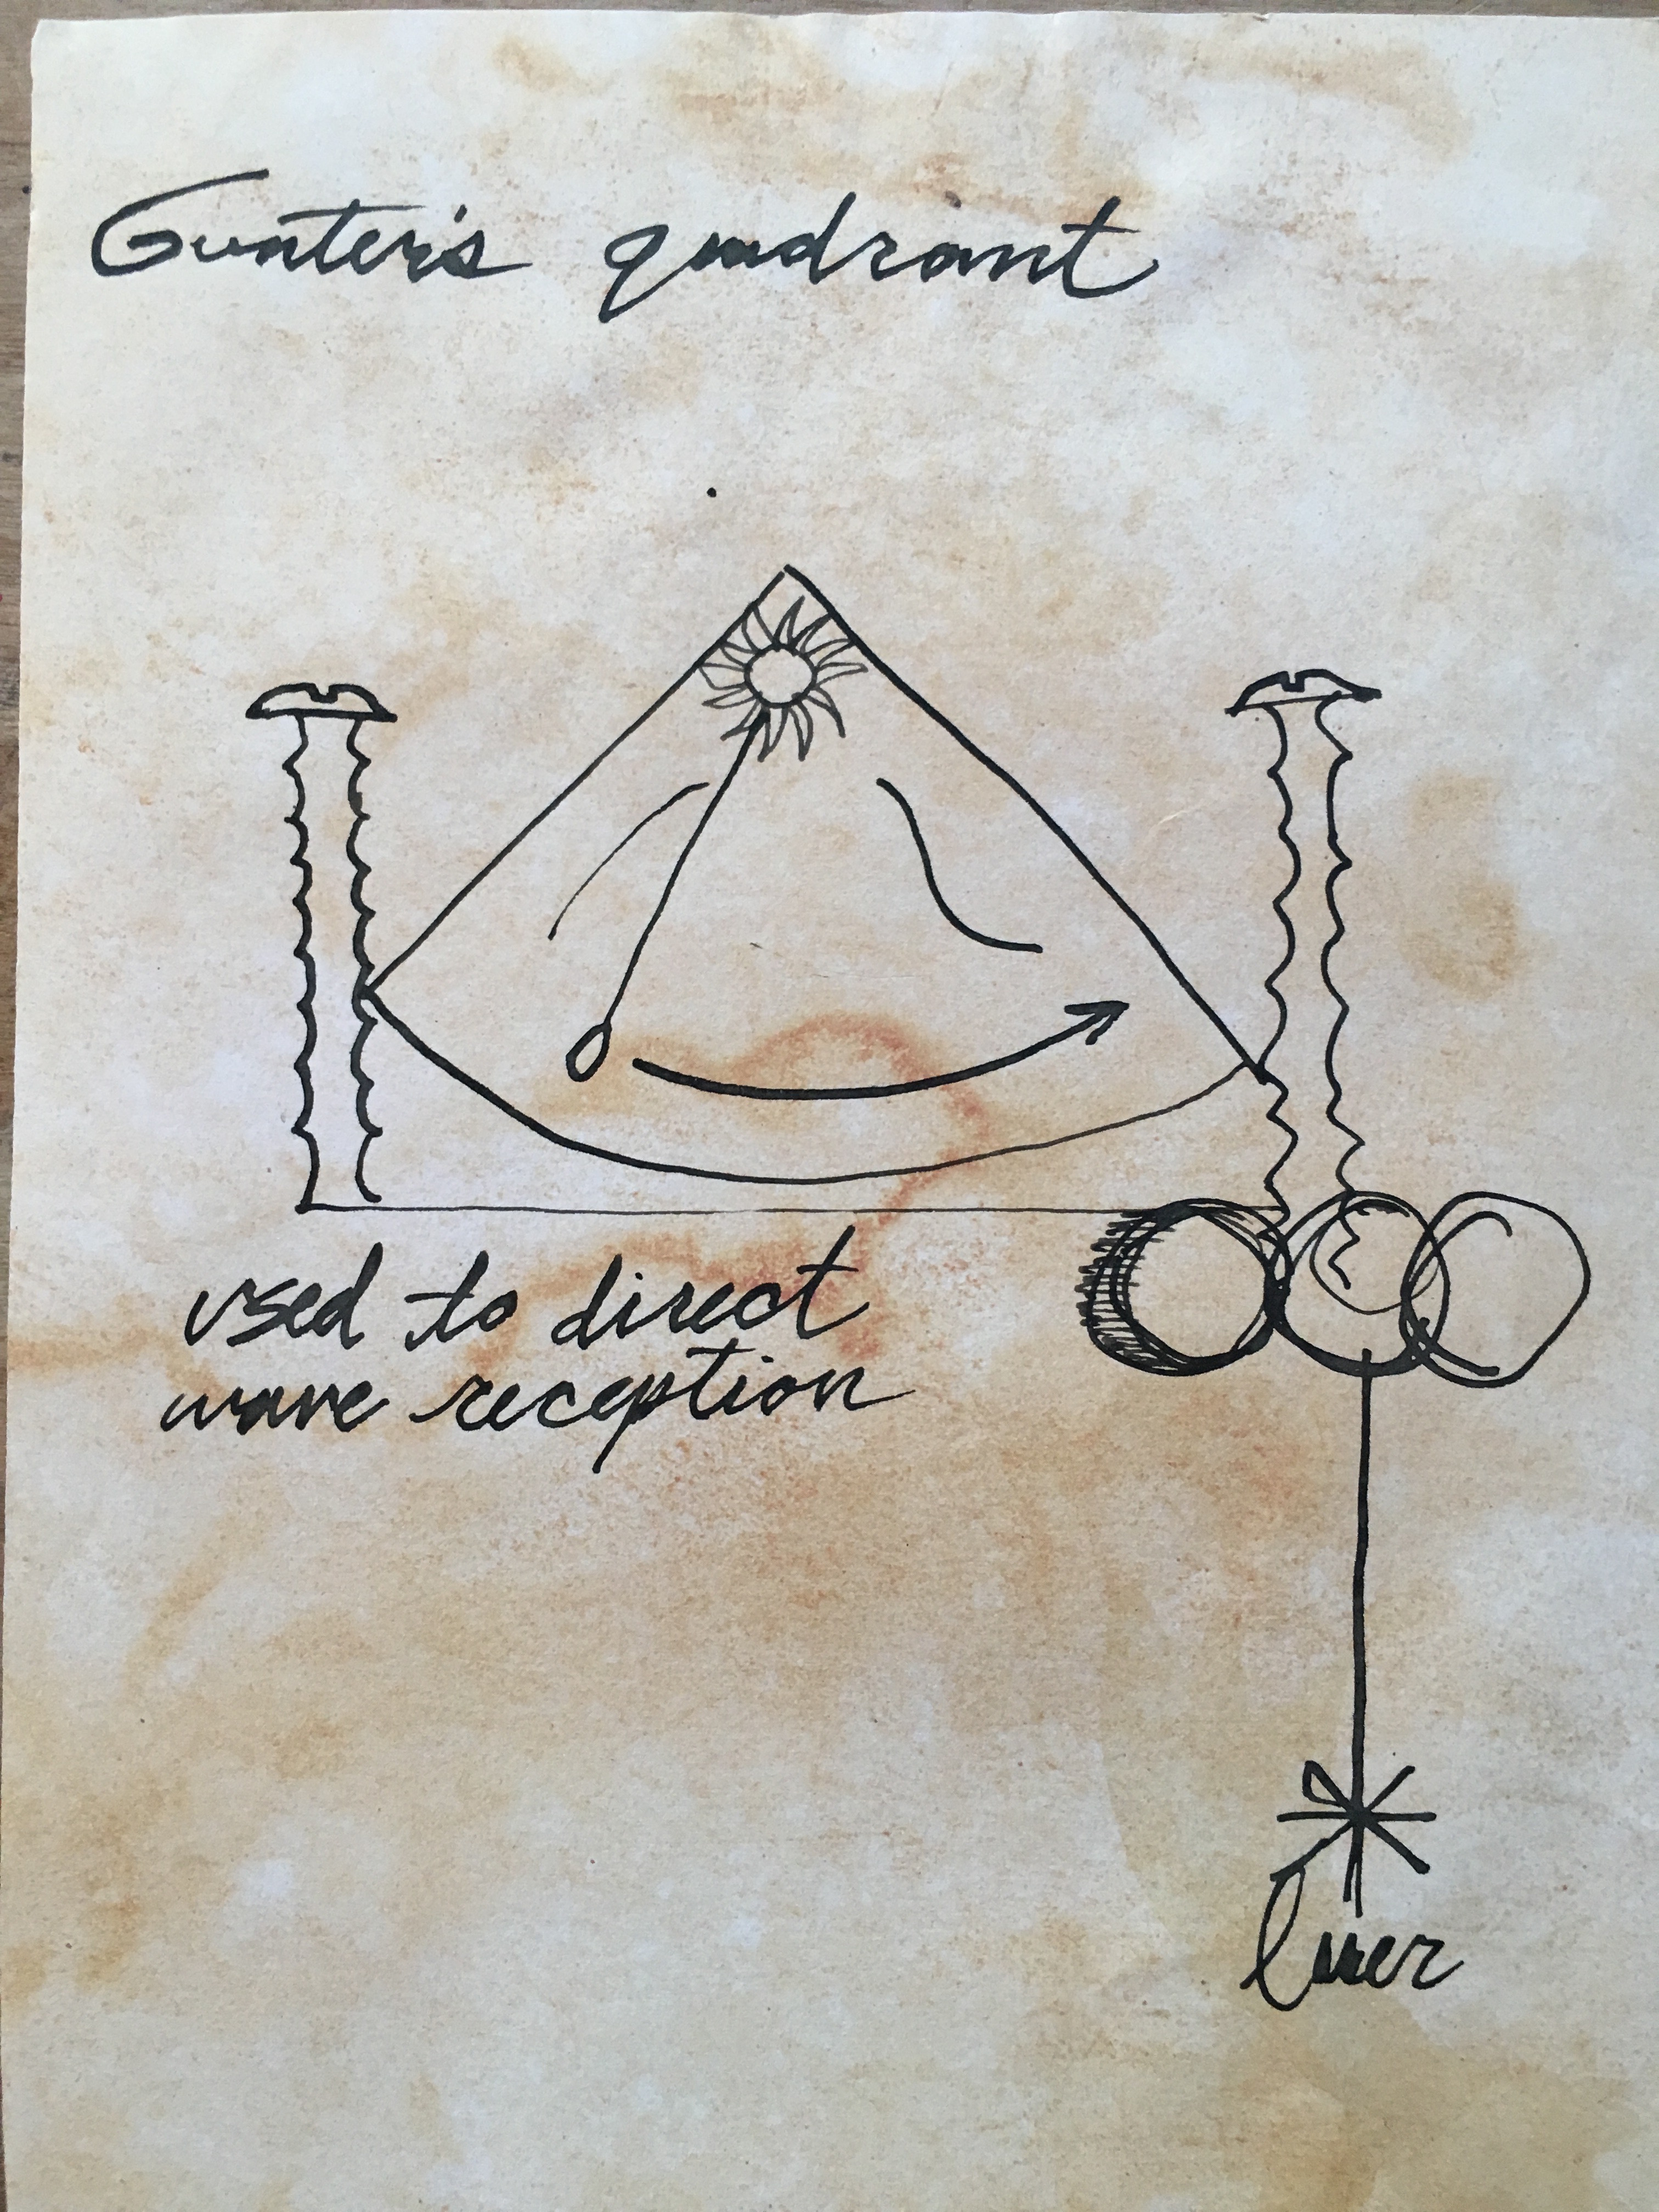 Gunter's quadrant
used to direct
wave reception